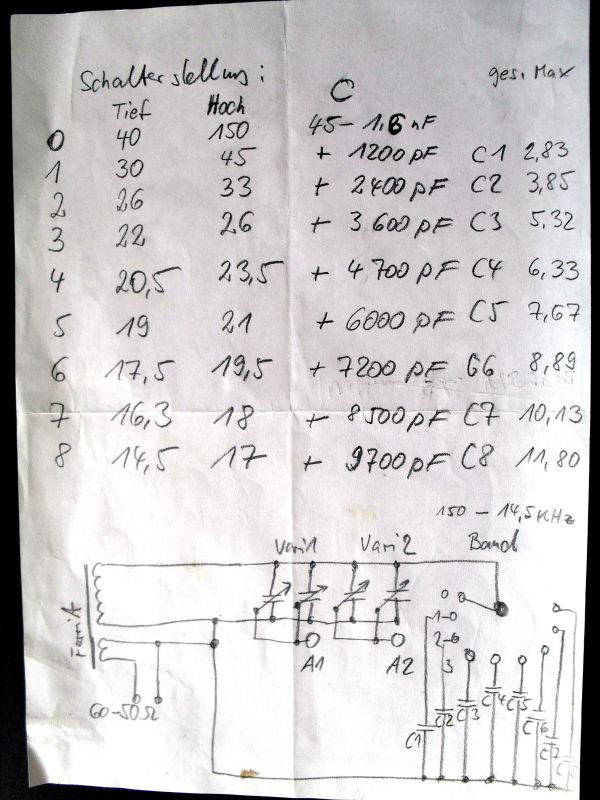 Schalterstellung :
C
ges. Max
Tief Hoch
0 40 150 45 - 1,6 nF
1 30 45 + 1200 pF C1 2,83
2 26 33 + 2400 pF C2 3,85
3 22 26 + 3600 pF C3 5,32
4 20,5 23,5 + 4700 pF C4 6,33
5 19 21 + 6000 pF C5 7,67
6 17,5 19,5 + 7200 pF C6 8,89
7 16,3 18 + 8500 pF C7 10,13
8 14,5 17 + 9700 pF C8 11,80
150 - 14,5 KHz
Vari1 Vari2 Band
Ferrit
0
1
2
3
A1 A2
60-50Ω
C1 C2 C3 C4 C5 C6 C7